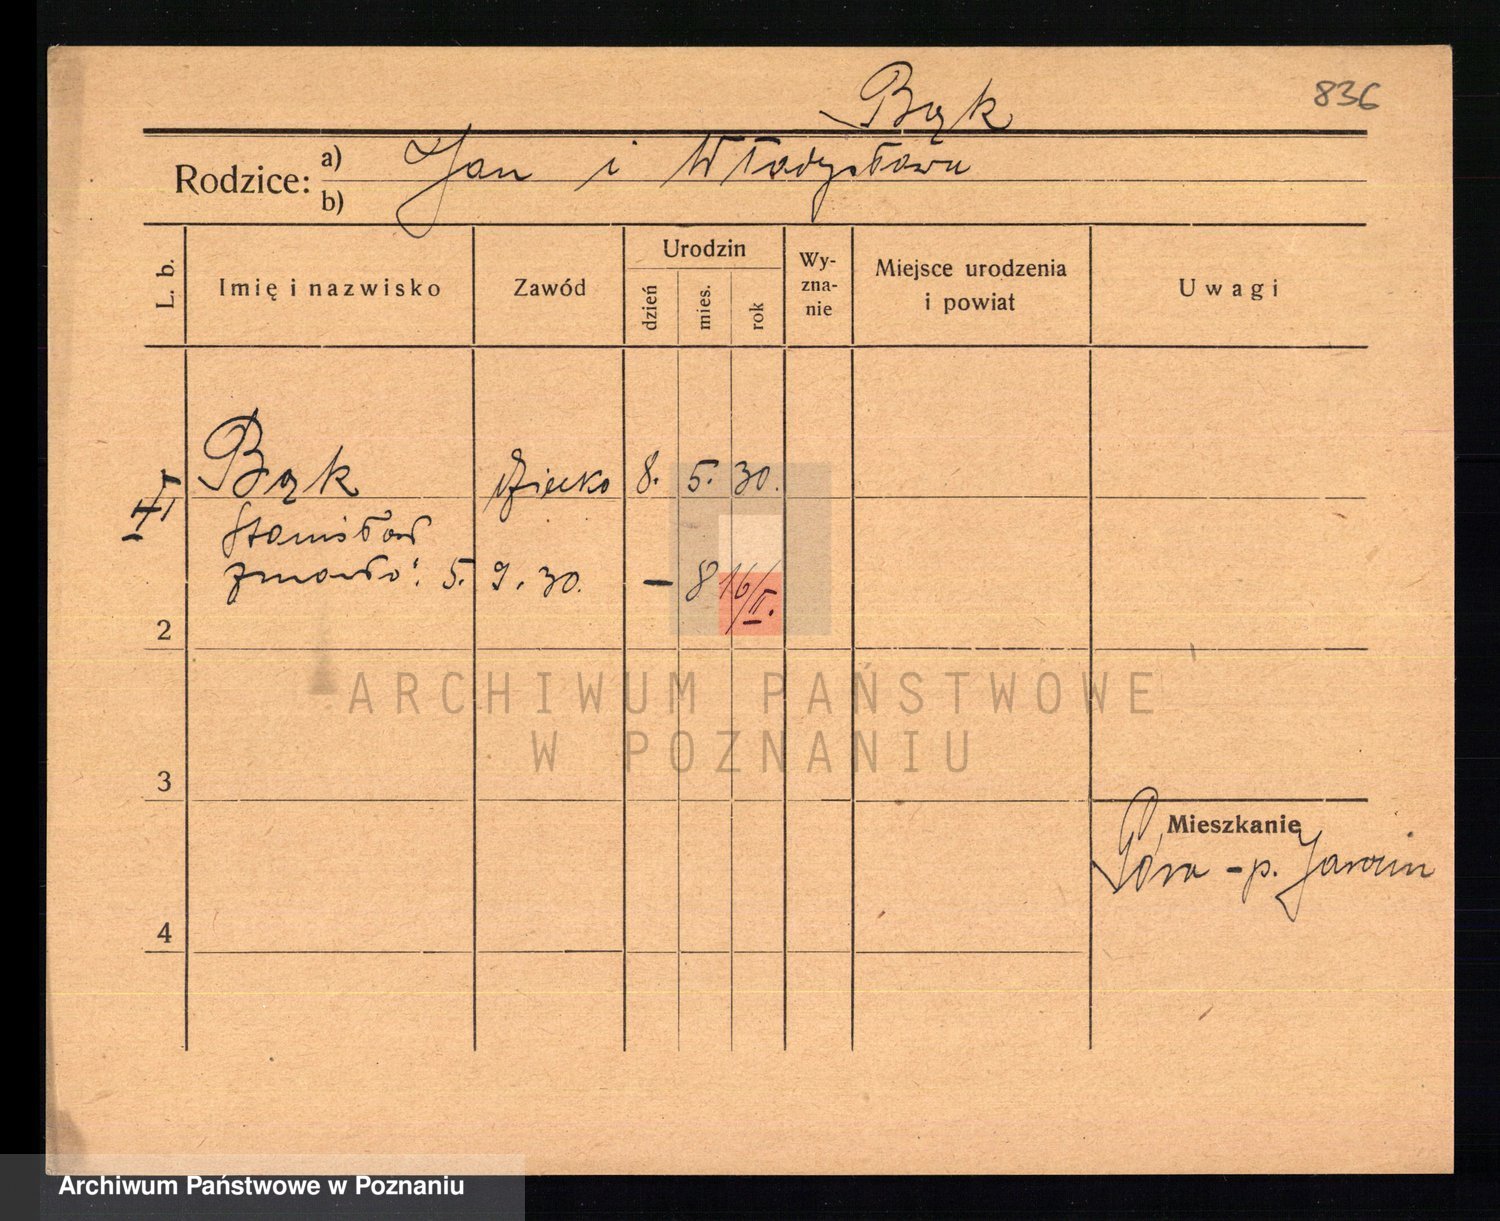 Bąk
836
Rodzice: a) Jan i Władysława
b)
L. b.
Imię i nazwisko
Zawód
Urodzin
dzień
mies.
rok
Wy-
zna-
nie
Miejsce urodzenia
i powiat
Uwagi
Bąk dziecko 8. 5. 30.
Stanisław
zmarło: 5. 9. 30. – 8 16/II.
2
ARCHIWUM PAŃSTWOWE
W POZNANIU
3
Mieszkanie
Góra - p. Jarocin
4
Archiwum Państwowe w Poznaniu